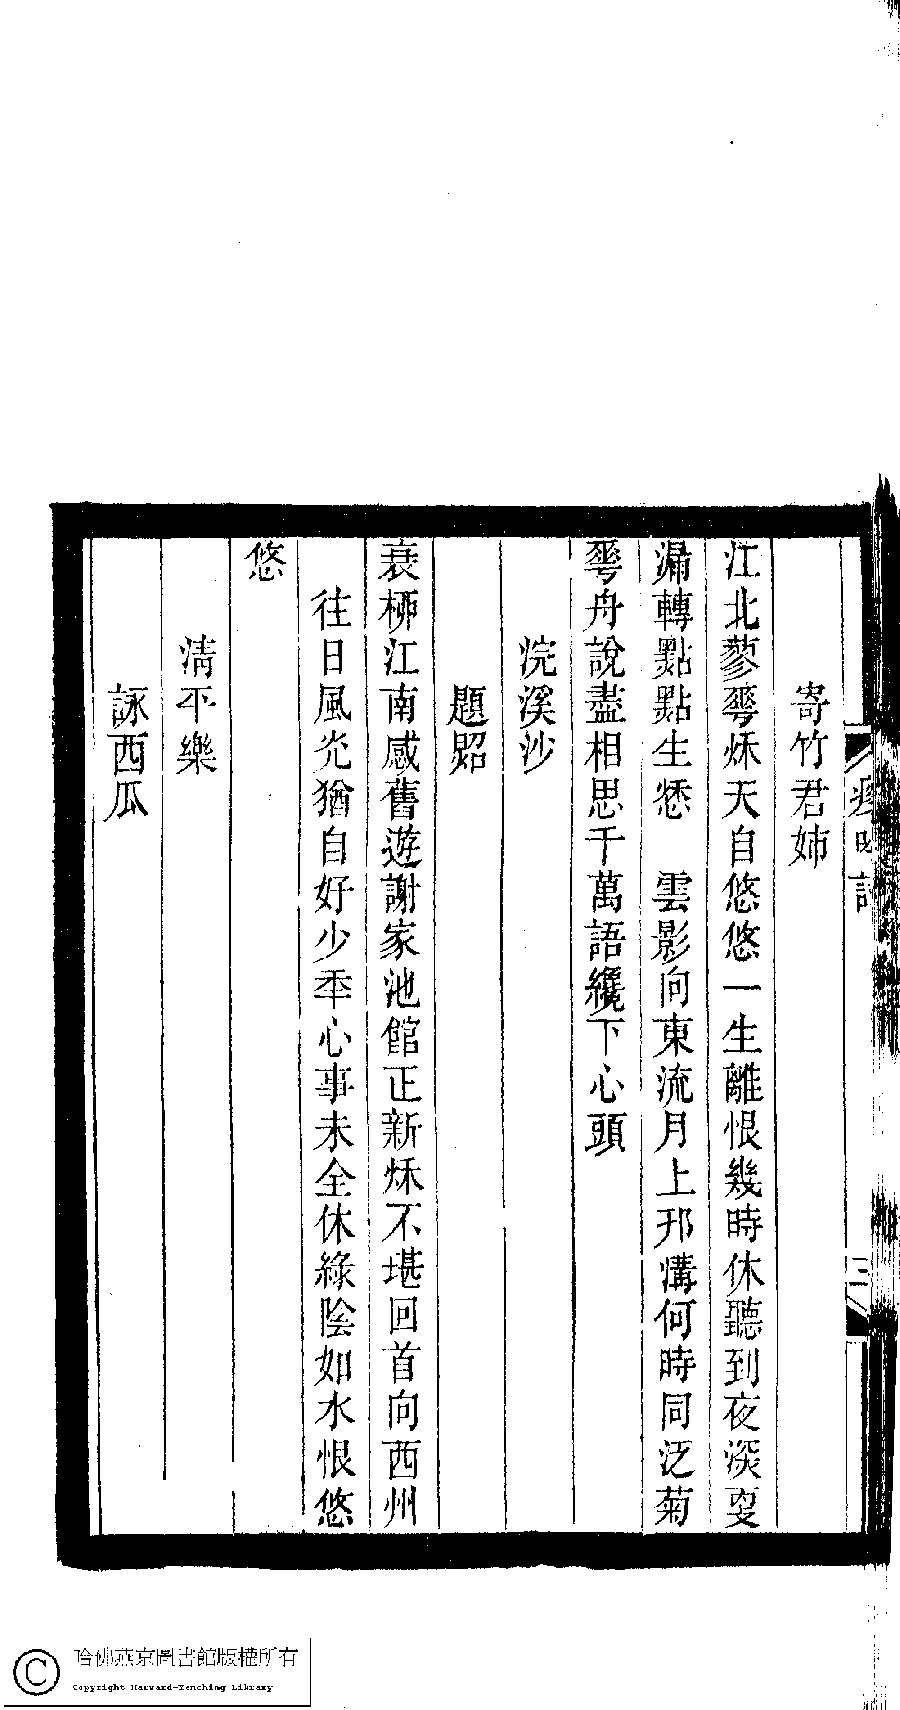 寄竹君姉
江北蓼蕚秌天自悠悠一生離恨幾時休聽到夜深叓
漏轉點點生愁　雲影向東流月上邗溝何時同泛菊
蕚舟說盡相思千萬語纔下心頭
浣溪沙
題照
衰桺江南感舊遊謝家池館正新秌不堪回首向西州
往日風光猶自好少秊心事未全休綠陰如水恨悠
悠
清平樂
詠西瓜
三
哈佛燕京圖書館版權所有
Copyright Harvard-Yenching Library